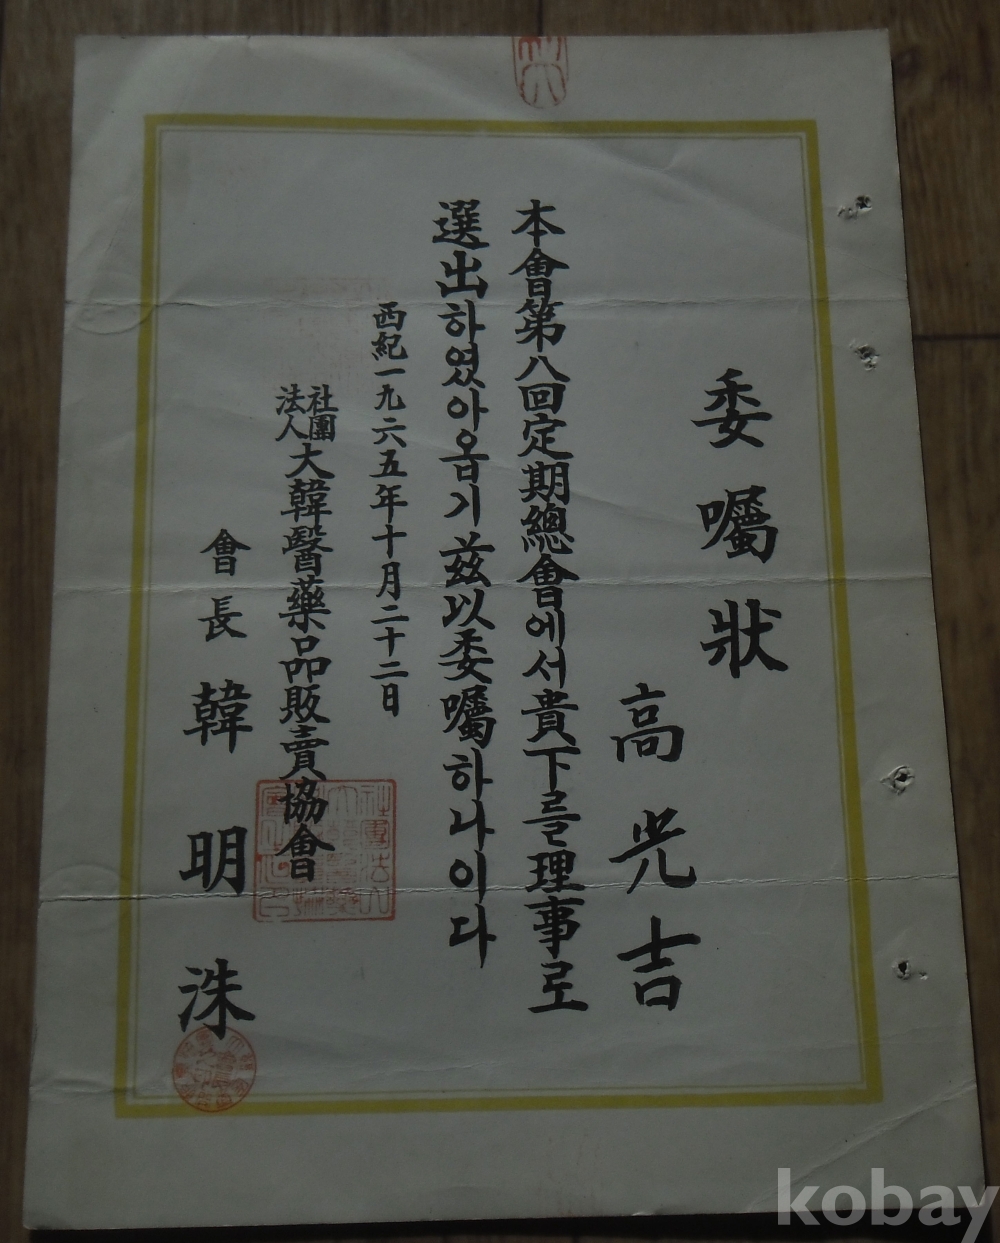 委囑狀
高光吉
本會第八回定期總會에서貴下를理事로
選出하였아옵기玆以委囑하나이다
西紀一九六五年十月二十二日
社團法人大韓醫藥品販賣協會
會長 韓明洙
kobay